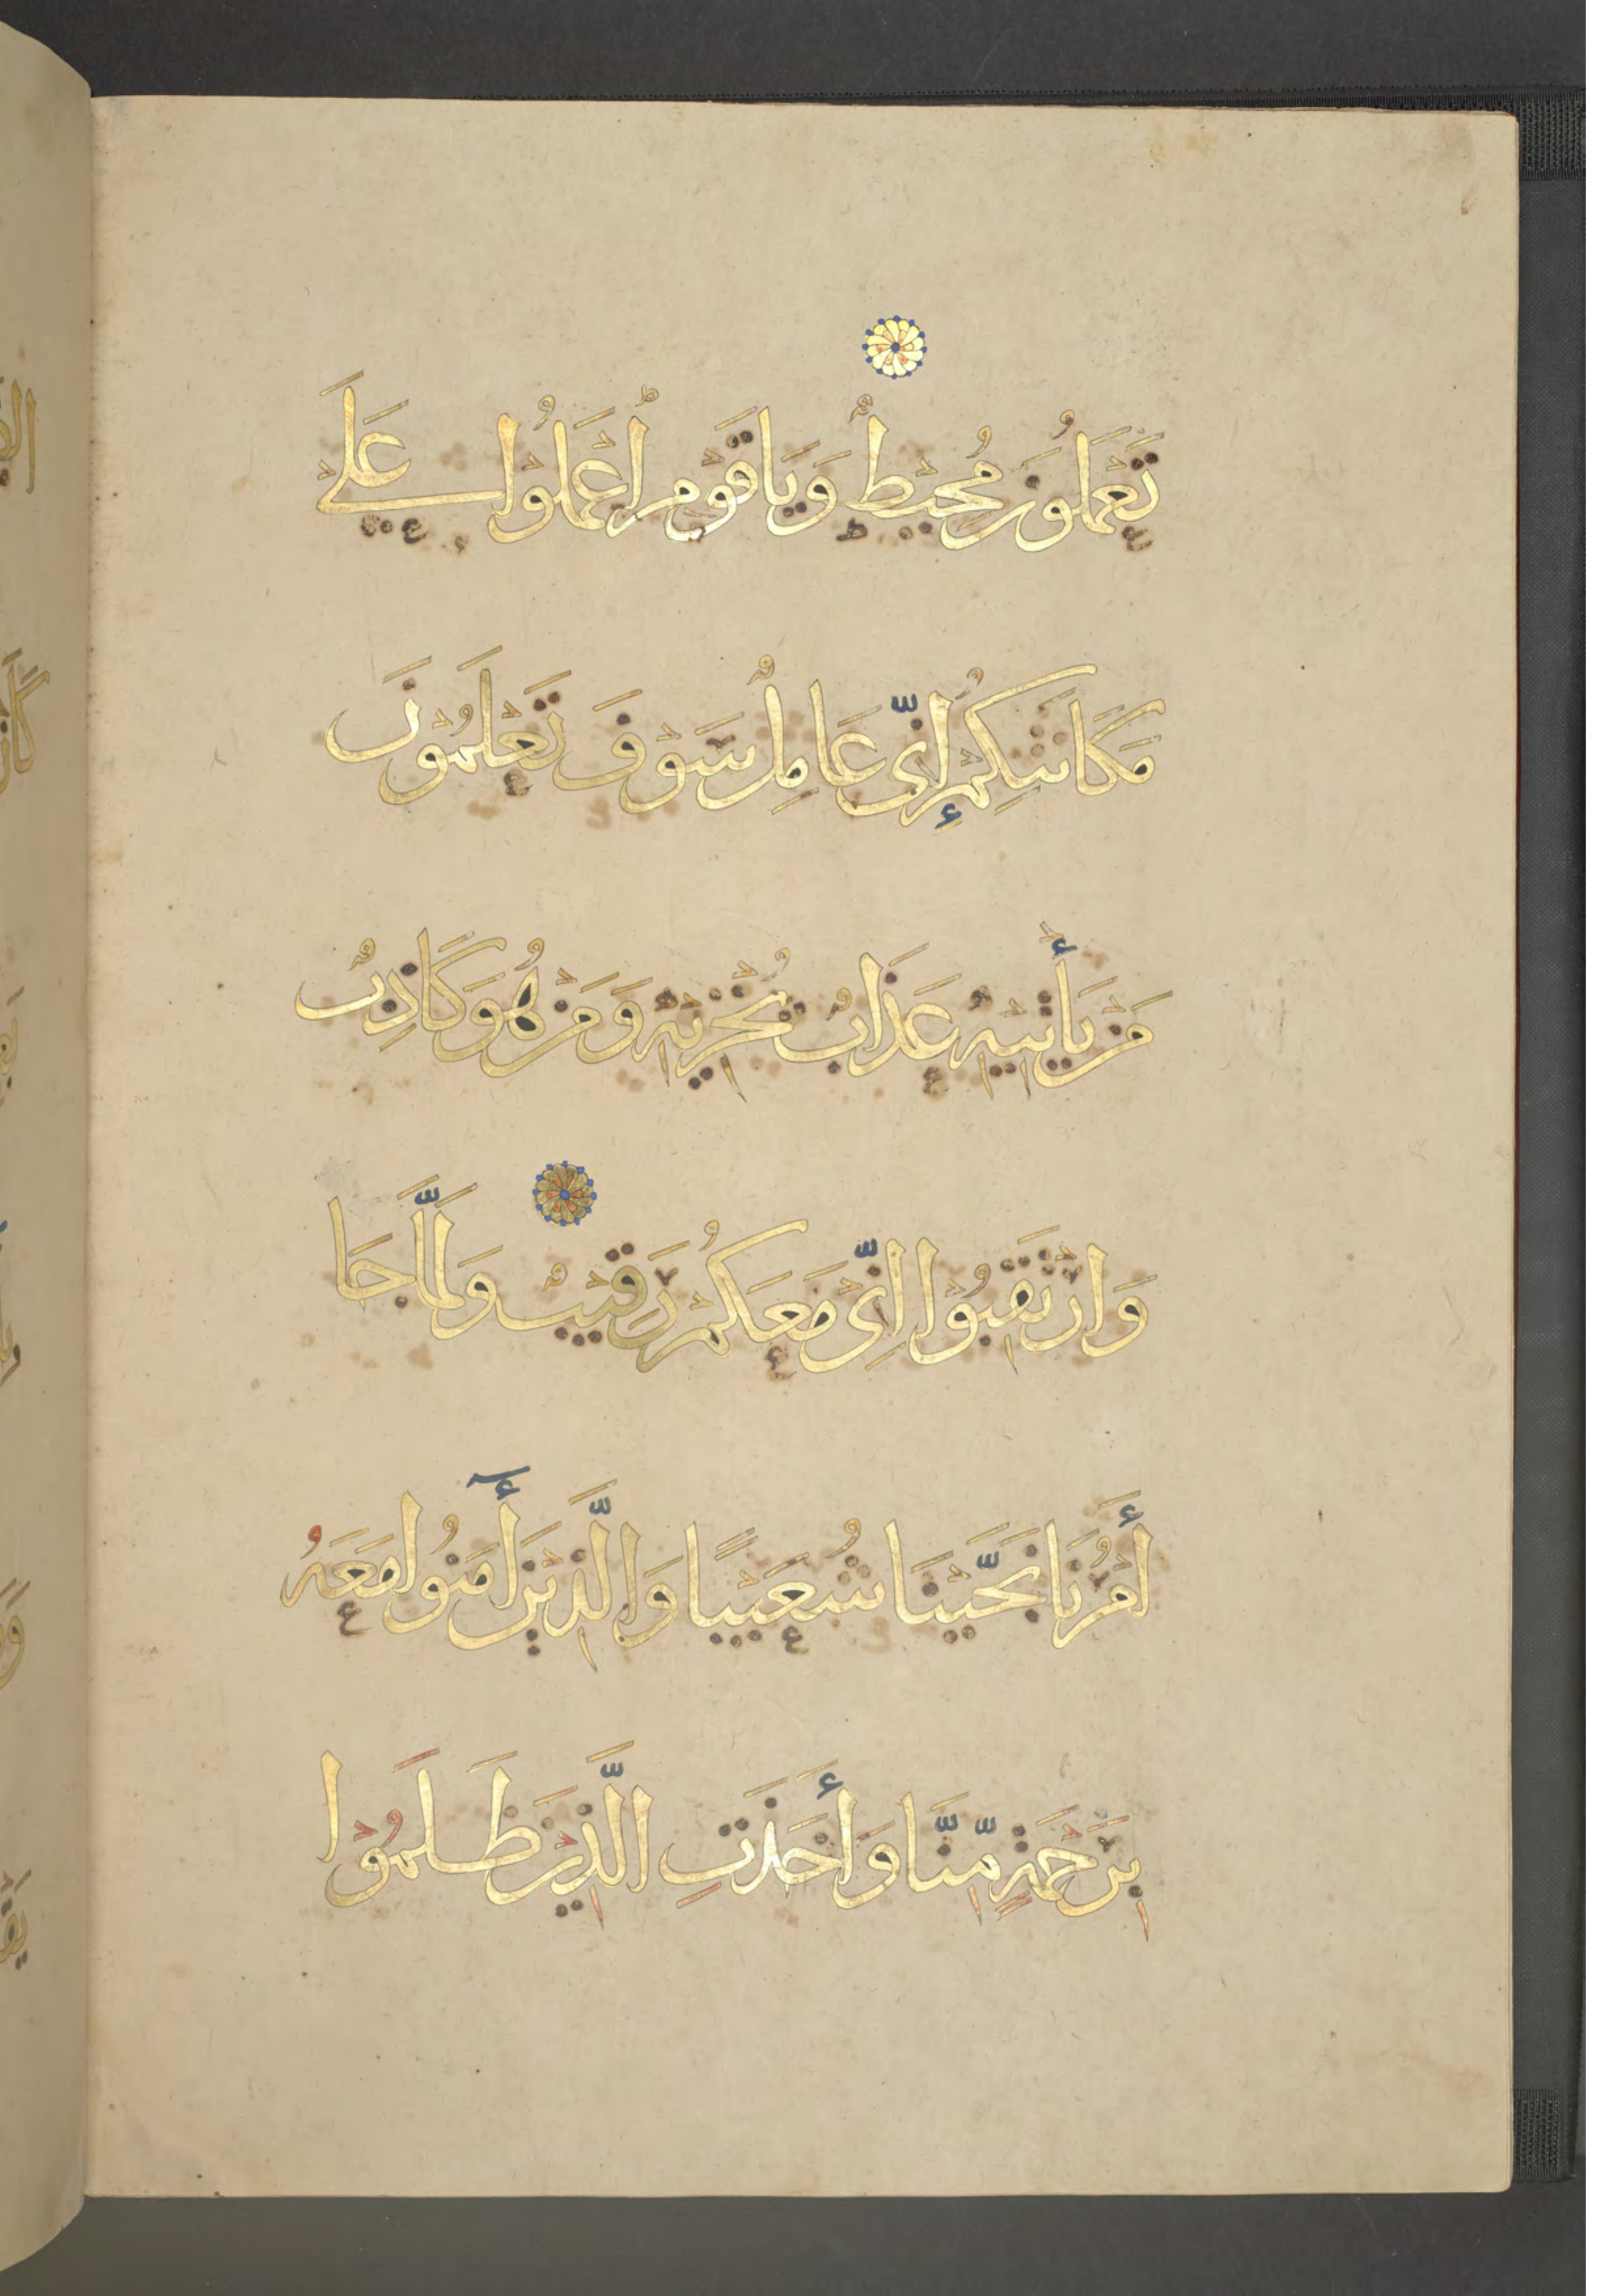 تَعْمَلُونَ مُحِيْطٌ وَيَا قَوْمِ اعْمَلُوْا عَلَى
مَكَانَتِكُمْ إِنِّي عَامِلٌ سَوْفَ تَعْلَمُوْنَ
مَنْ يَأْتِيهِ عَذَابٌ يُخْزِيْهِ وَمَنْ هُوَ كَاذِبٌ
وَارْتَقِبُوْا إِنِّيْ مَعَكُمْ رَقِيْبٌ وَلَمَّا جَا
أَمْرُنَا نَجَّيْنَا شُعَيْبًا وَالَّذِيْنَ أٓمَنُوا مَعَهُ
بِرَحْمَةٍ مِّنَّا وَأَخَذَتِ الَّذِيْنَ ظَلَمُوْا